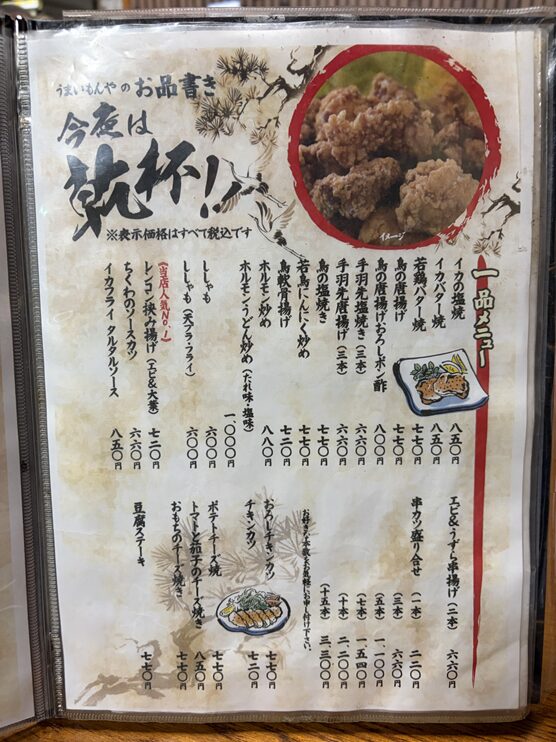 うまいもんやのお品書き
今夜は
乾杯!!
※表示価格はすべて税込です
イメージ
一品メニュー
イカの塩焼 八五〇円
イカバター焼 八五〇円
若鶏バター焼 七七〇円
鳥の唐揚げ 七七〇円
鳥の唐揚げおろしポン酢 八〇〇円
手羽先塩焼き(三本) 六六〇円
手羽先唐揚げ(三本) 六六〇円
鳥の塩焼き 七七〇円
若鳥にんにく炒め 七七〇円
鳥軟骨揚げ 七二〇円
ホルモン炒め 八八〇円
ホルモンうどん炒め(たれ味・塩味) 一〇〇〇円
ししゃも 六〇〇円
ししゃも(天プラ・フライ) 六〇〇円
《当店人気No.1》
レンコン挟み揚げ(エビ&大葉) 七二〇円
ちくわのソースカツ 六六〇円
イカフライ タルタルソース 八五〇円
エビ&うずら串揚げ(二本) 六六〇円
串カツ盛り合せ(一本) 二二〇円
(三本) 六六〇円
(五本) 一、一〇〇円
(七本) 一、五四〇円
(十本) 二、二〇〇円
(十五本) 三、三〇〇円
お好きな本数をお気軽にお申し付け下さい。
おろしチキンカツ 七七〇円
チキンカツ 七二〇円
ポテトチーズ焼 七七〇円
トマトと茄子のチーズ焼き 八五〇円
おもちのチーズ焼き 七七〇円
豆腐ステーキ 七七〇円